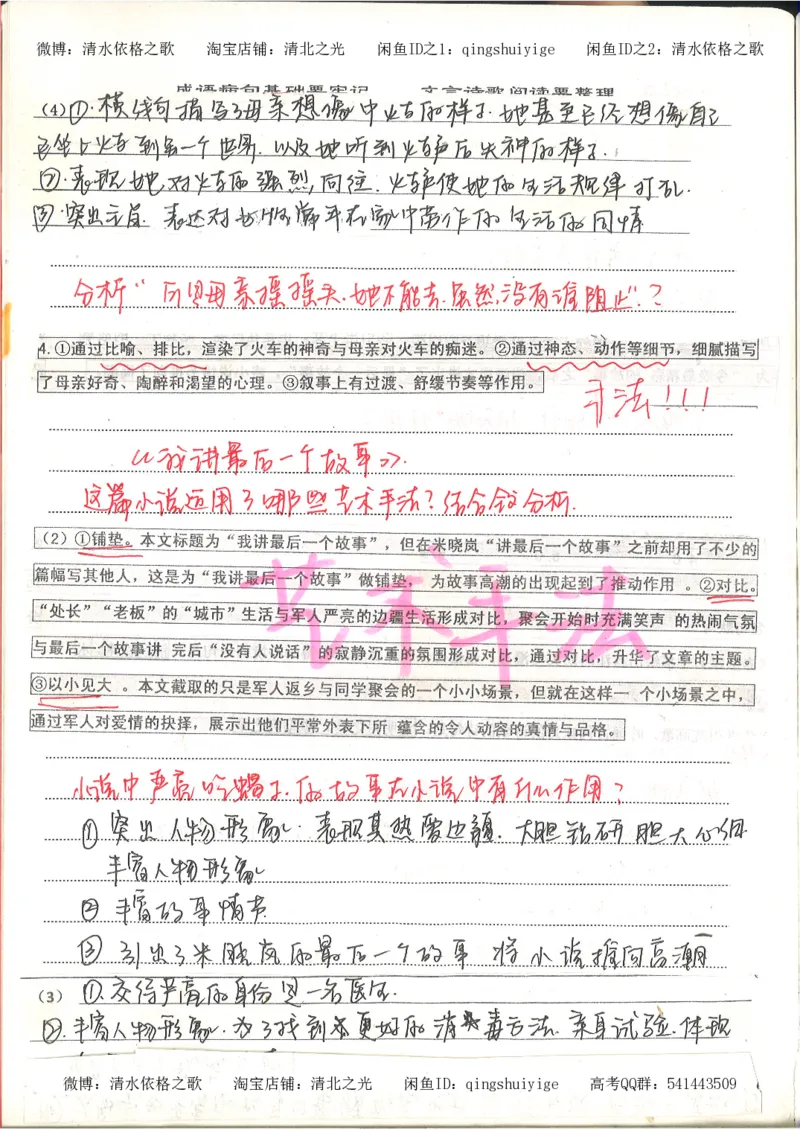 微博：清水依格之歌 淘宝店铺：清北之光 闲鱼ID之1：qingshuiyige 闲鱼ID之2：清水依格之歌
成语病句基础要牢记 文言诗歌阅读要整理
(4) ①.横线句描写了母亲想像中火车的样子.她甚至已经想像自己
已坐上火车到另一个世界.以及她听到火车声后失神的样子.
②.表现她对火车的强烈向往.火车声使她的生活规律打乱.
③.突出主旨.表达对女性常年在家中劳作的生活的同情
分析“所以母亲摇摇头.她不能去.虽然没有谁阻止”.?
4.①通过比喻、排比，渲染了火车的神奇与母亲对火车的痴迷。②通过神态、动作等细节，细腻描写
了母亲好奇、陶醉和渴望的心理。③叙事上有过渡、舒缓节奏等作用。
手法!!!
《我讲最后一个故事》.
这篇小说运用了哪些艺术手法?结合全文分析.
（2）①铺垫。本文标题为“我讲最后一个故事”，但在米晓岚“讲最后一个故事”之前却用了不少的
篇幅写其他人，这是为“我讲最后一个故事”做铺垫， 为故事高潮的出现起到了推动作用 。②对比。
“处长”“老板”的“城市”生活与军人严亮的边疆生活形成对比，聚会开始时充满笑声 的热闹气氛
与最后一个故事讲 完后“没有人说话”的寂静沉重的氛围形成对比，通过对比，升华了文章的主题。
③以小见大 。本文截取的只是军人返乡与同学聚会的一个小小场景，但就在这样一 个小场景之中，
通过军人对爱情的抉择，展示出他们平常外表下所 蕴含的令人动容的真情与品格。
艺术手法
小说中严亮吃蝎子.的故事在小说中有什么作用?
①突出人物形象.表现其热爱边疆.大胆钻研 胆大心细
丰富人物形象
②丰富故事情节
③引出了米晓岚的最后一个故事 将小说推向高潮
(3) ①.交待严亮的身份是一名医生.
②.丰富人物形象.为了找到更好的消毒方法.亲身试验.体现
微博：清水依格之歌 淘宝店铺：清北之光 闲鱼ID：qingshuiyige 高考QQ群：541443509